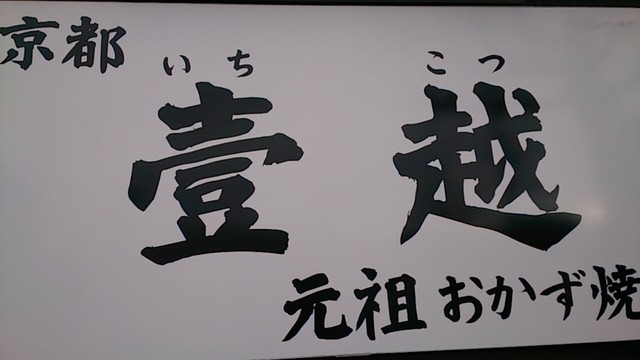 京都
いち こつ
壹越
元祖おかず焼